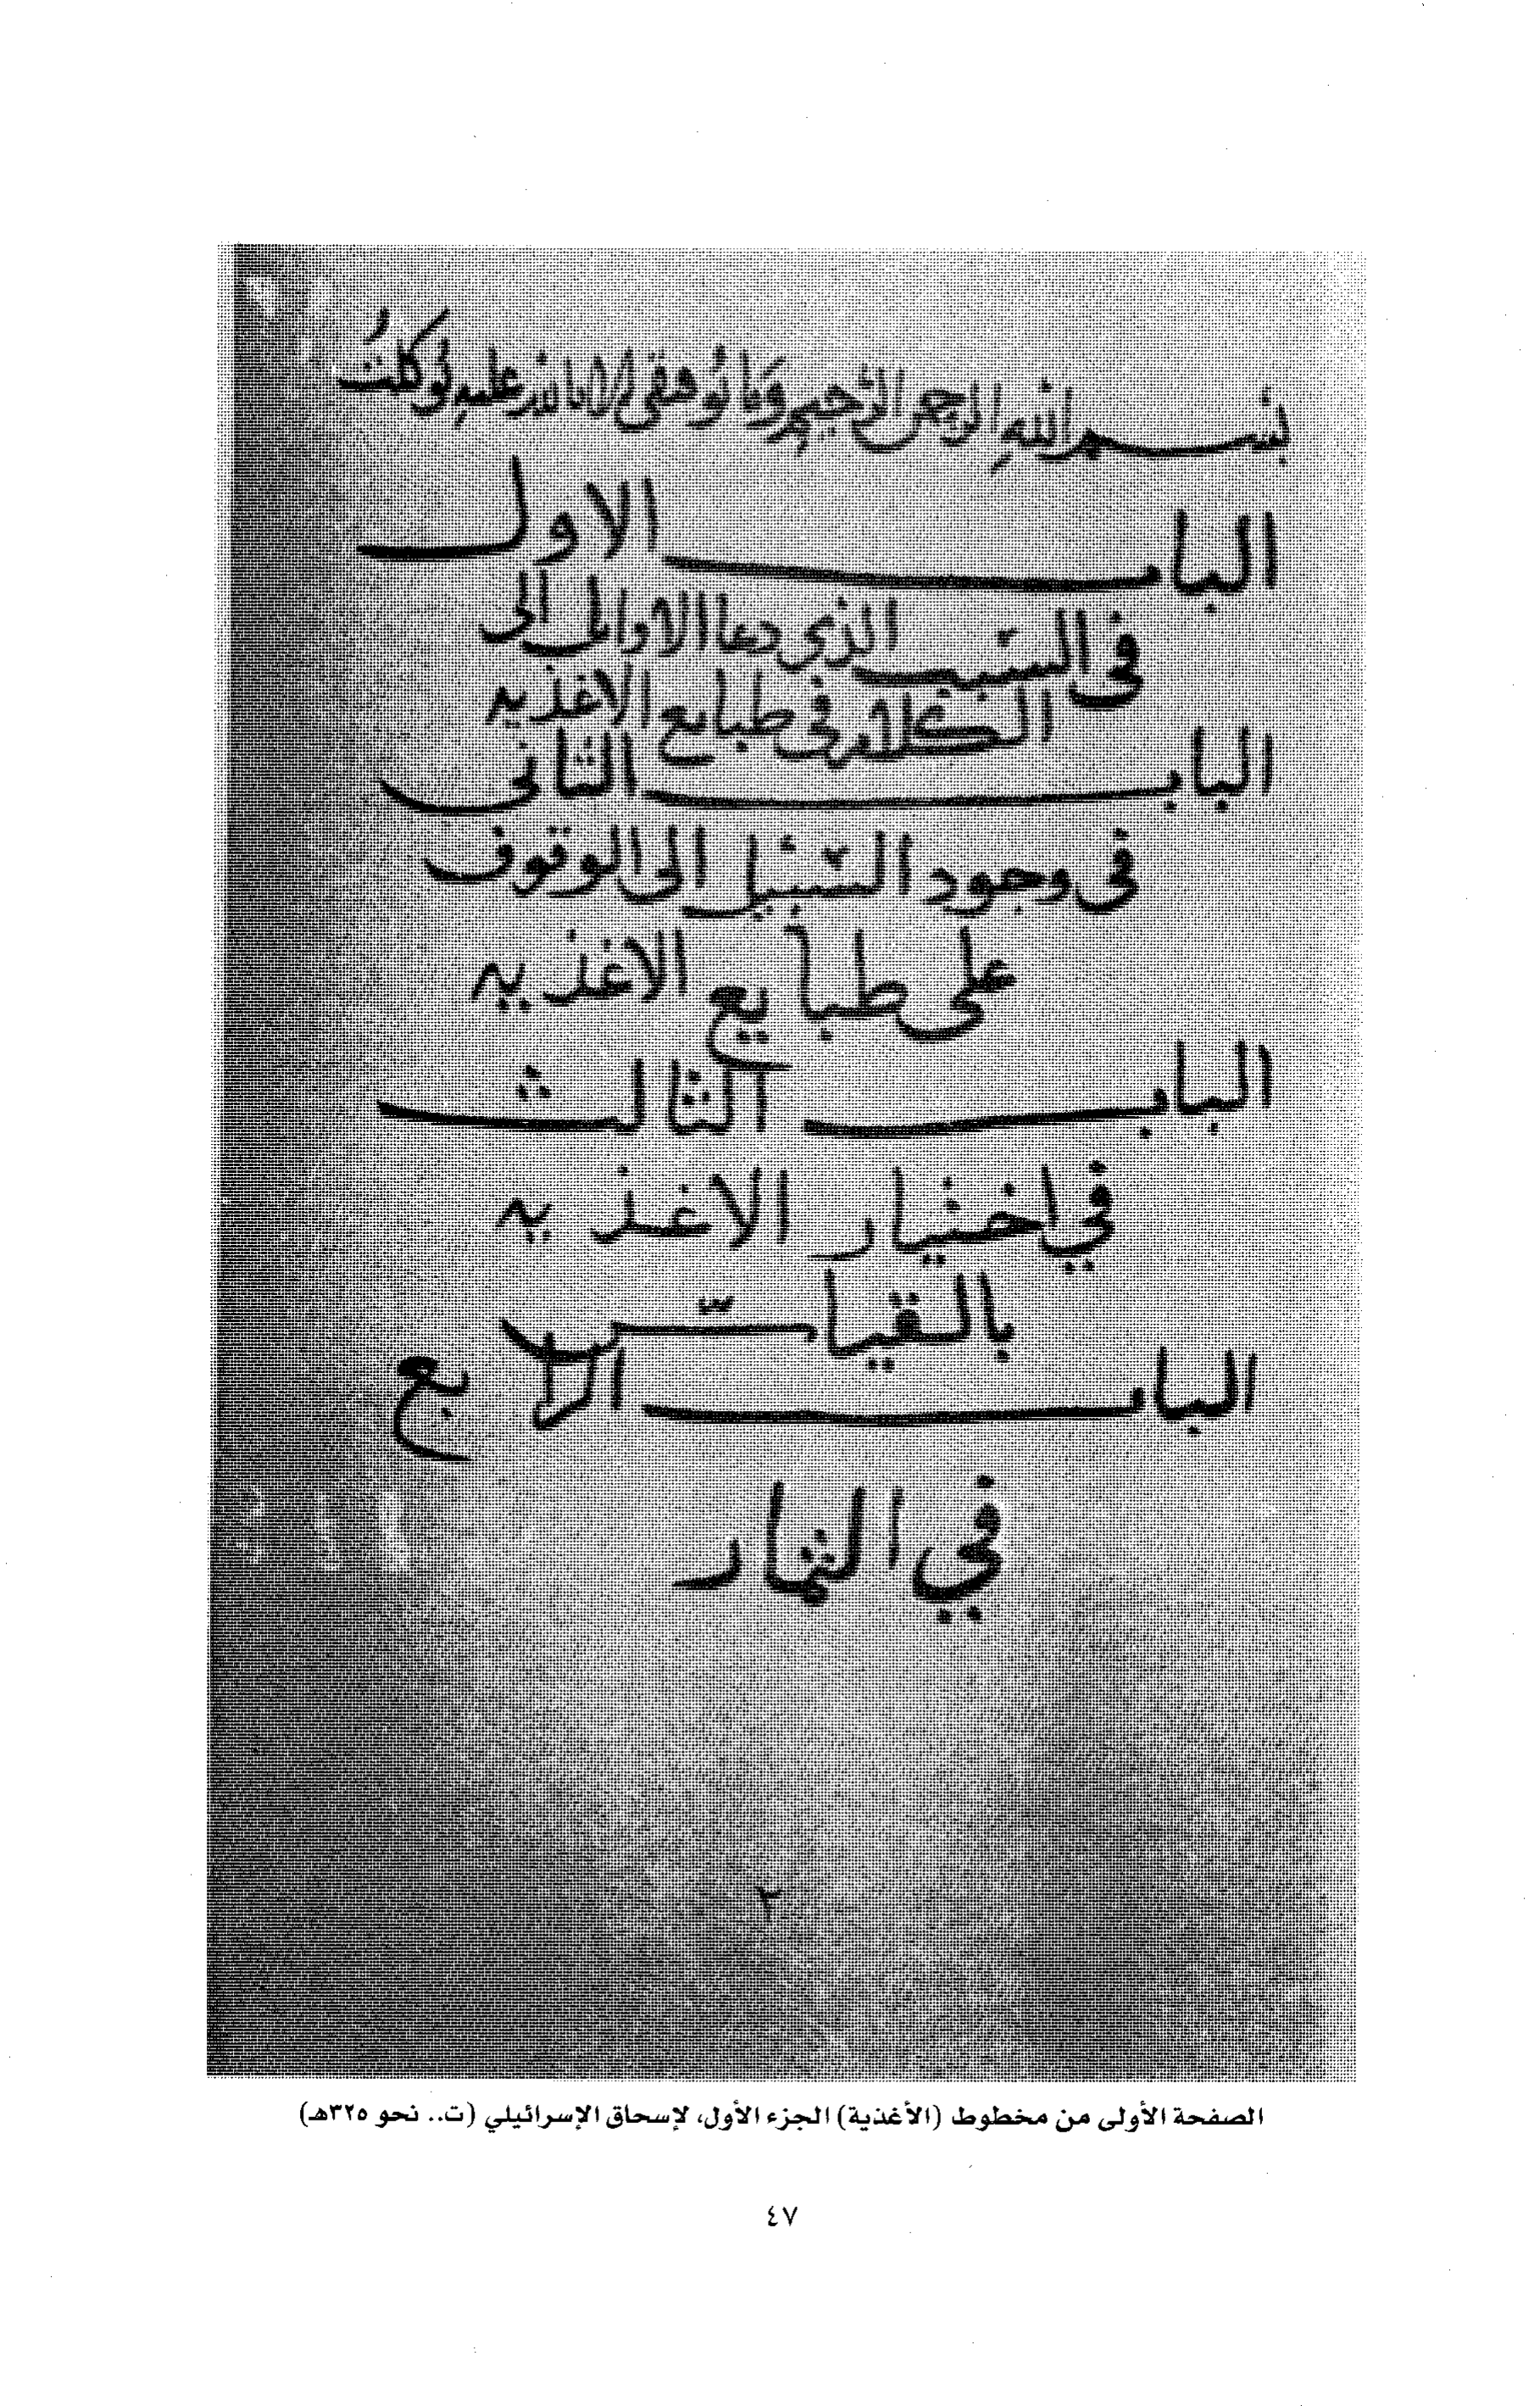 بسم اللهِ الرحمن الرَّحيم وَما تَوُفيقى الا بالله عليهِ تَوَكلتُ
الباب الاول
فى السّبب الذى دعا الاوايل الى
الكلام فى طبايع الاغذيه
الباب الثانى
فى وجود السّبيل الى الوقوف
على طبايع الاغذيه
الباب الثالث
في اختيار الاغذيه
بالقياس
الباب الرابع
في الثمار
٢
الصفحة الأولى من مخطوط (الأغذية) الجزء الأول، لإسحاق الإسرائيلي (ت.. نحو ٣٢٥هـ)
٤٧